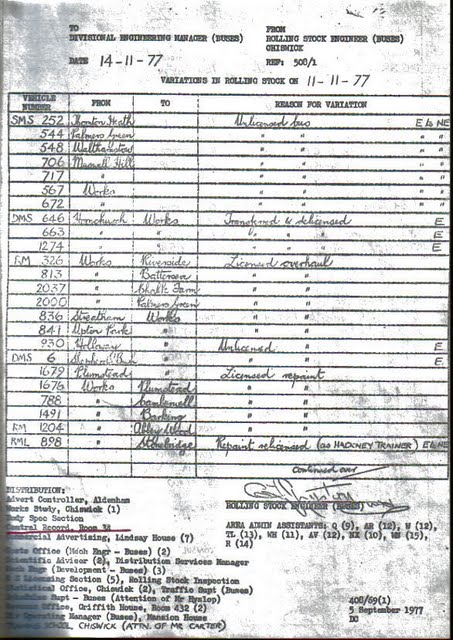 TO FROM
DIVISIONAL ENGINEERING MANAGER (BUSES) ROLLING STOCK ENGINEER (BUSES)
CHISWICK
DATE 14-11-77 REF: 508/1
VARIATIONS IN ROLLING STOCK ON 11-11-77
VEHICLE NUMBER FROM TO REASON FOR VARIATION
SMS 252 Thornton Heath Unlicensed bus E & NE
544 Palmers Green " " " "
548 Walthamstow " " " "
706 Muswell Hill " " " "
717 " " " " "
567 Works " " " "
672 " " " " "
DMS 646 Hornchurch Works Transferred & relicensed E
663 " " " " E
1274 " " " " E
RM 326 Works Riverside Licensed overhaul
813 " Battersea " "
2037 " Chalk Farm " "
2000 " Palmers Green " "
836 Streatham Works " "
841 Upton Park " " "
930 Holloway " Unlicensed " E
DMS 6 Shepherds Bush " " " E
1679 Plumstead " Licensed repaint
1676 Works Plumstead " "
788 " Camberwell " "
1491 " Barking " "
RM 1204 " Abbey Wood " "
RML 898 " Stonebridge Repaint relicensed (as HACKNEY TRAINER) E & NE
Continued over
DISTRIBUTION: ROLLING STOCK ENGINEER (BUSES)
Advert Controller, Aldenham
Works Study, Chiswick (1)
Body Spec Section
Central Record, Room 38
Commercial Advertising, Lindsay House (7)
AREA ADMIN ASSISTANTS: Q (9), AR (12), W (12),
TL (13), WH (11), AV (12), NX (10), MN (15),
R (14)
Costs Office (Mech Engr - Buses) (2)
Scientific Advisor (2), Distribution Services Manager
Engr (Development - Buses) (3)
Licensing Section (5), Rolling Stock Inspection
Statistical Office, Chiswick (2), Traffic Supt (Buses)
Supt - Buses (Attention of Mr Hyslop)
Office, Griffith House, Room 432 (2)
Operating Manager (Buses), Mansion House
CHISWICK (ATTN. OF MR CARTER)
408/69(1)
5 September 1977
DG